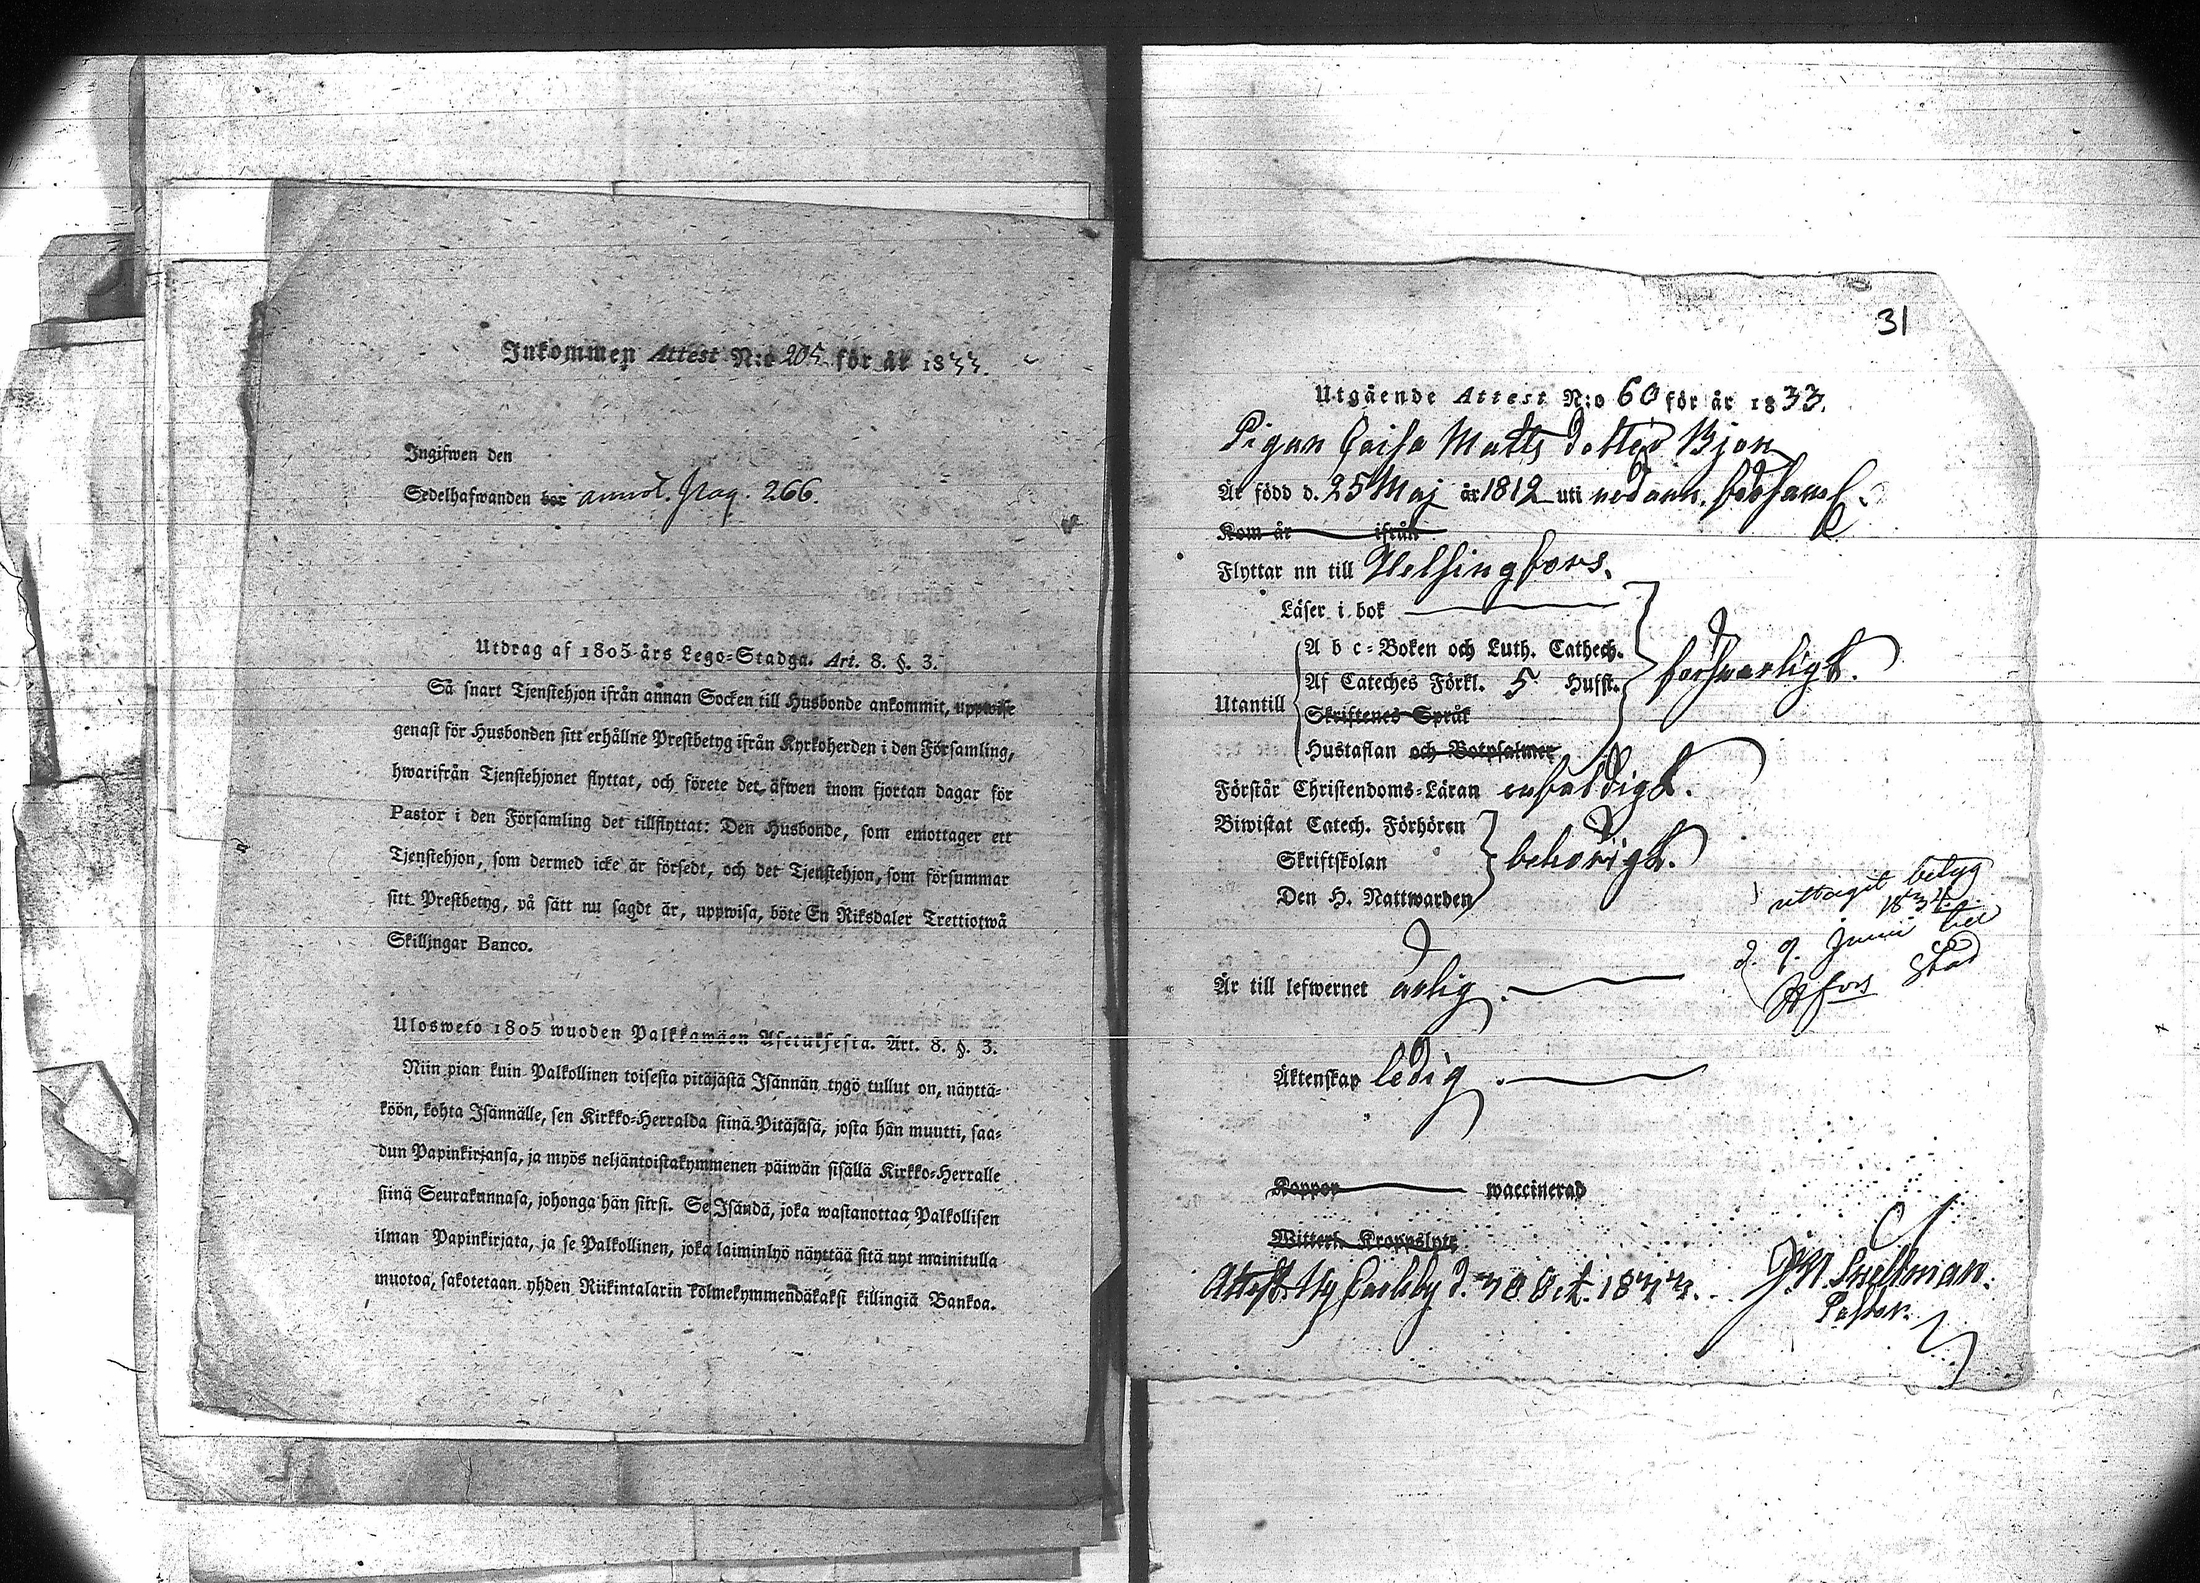 Inkommen Attest N:o 205 för år 1833.
Ingifwen den
Sedelhafwanden bor annot. pag. 266.
Utdrag af 1805 års Lego-Stadga. Art. 8. §. 3.
Så snart Tjenstehjon ifrån annan Socken till Husbonde ankommit, uppwise
genast för Husbonden sitt erhållne Prestbetyg ifrån Kyrkoherden i den Församling,
hwarifrån Tjenstehjonet flyttat, och förete det äfwen inom fjortan dagar för
Pastor i den Församling det tillflyttat: Den Husbonde, som emottager ett
Tjenstehjon, som dermed icke är försedt, och det Tjenstehjon, som försummar
sitt Prestbetyg, på sätt nu sagdt är, uppwisa, böte En Riksdaler Trettiotwå
Skillingar Banco.
Ulosweto 1805 wuoden Palkkawäen Asetuksesta. Art. 8. §. 3.
Niin pian kuin Palkollinen toisesta pitäjästä Isännän tygö tullut on, näyttä-
köön, kohta Isännälle, sen Kirkko-Herralda siinä Pitäjäsä, josta hän muutti, saa-
dun Papinkirjansa, ja myös neljäntoistakymmenen päiwän sisällä Kirkko-Herralle
siinä Seurakunnasa, johonga hän siirsi. Se Isändä, joka wastanottaa Palkollisen
ilman Papinkirjata, ja se Palkollinen, joka laiminlyö näyttää sitä nyt mainitulla
muotoa, sakotetaan yhden Riikintalarin kolmekymmendäkaksi killingiä Bankoa.
31
Utgående Attest N:o 60 för år 1833.
Pigan Caisa Matts dotter Bjon
Är född d. 25 Maj år 1812 uti nedann. församl.
Kom år ifrån
Flyttar nu till Helsingfors.
Läser i bok
A b c-Boken och Luth. Cathech.
Af Cateches Förkl. 5 Hufst. försvarligt.
Utantill
Skriftenes Språk
Hustaflan och Botpsalmer
Förstår Christendoms-Läran enfaldigt.
Biwistat Catech. Förhören
Skriftskolan behörigt.
Den H. Nattwarden
uttagit betyg
1834
d. 9. Junii till
Hfors Stad
Är till lefwernet ärlig.
Äktenskap ledig.
Koppor waccinerad
Witterl. Kroppslyte
Attest. Ny Carleby d. 30 Oct. 1833. Snellman.
Pastor.